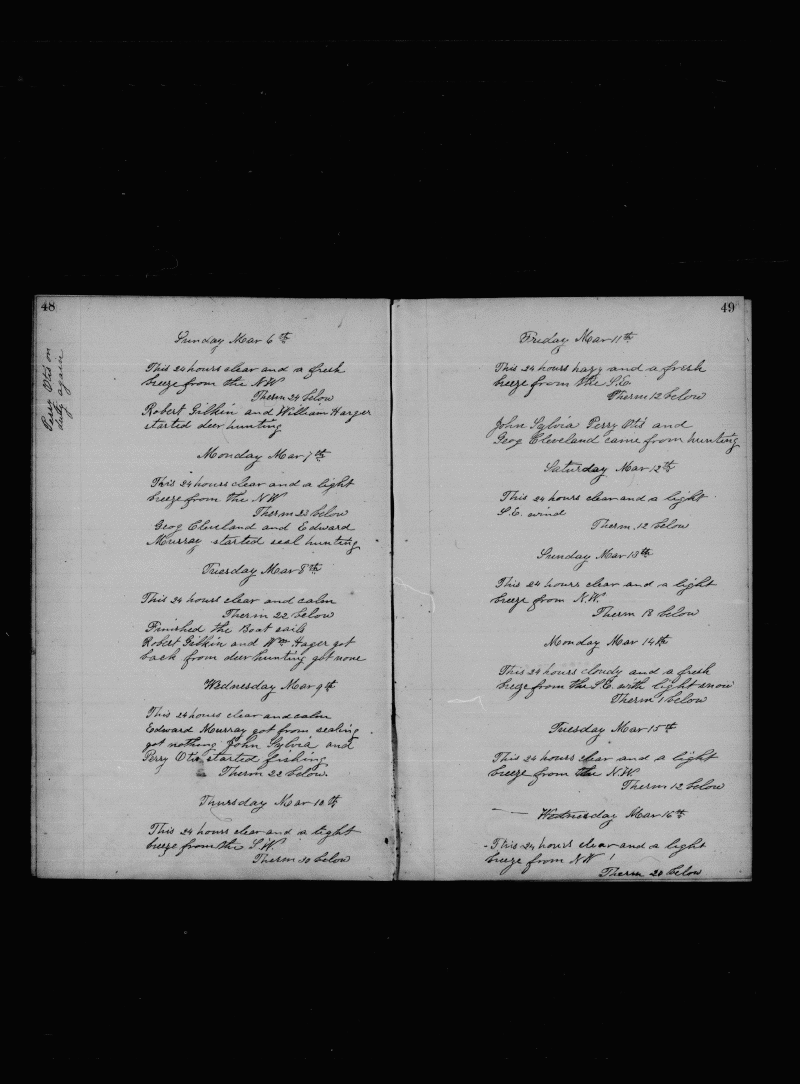 48
Perry Otis on
duty again
Sunday Mar 6th
This 24 hours clear and a fresh
breeze from the N.W.
Therm 24 below
Robert Gilkin and William Harger
started deer hunting
Monday Mar 7th
This 24 hours clear and a light
breeze from the N.W.
Therm 23 below
Geog Cleveland and Edward
Murray started seal hunting
Tuesday Mar 8th
This 24 hours clear and calm
Therm 22 below
Finished the Boat sails
Robert Gilkin and Wm Hager got
back from deer hunting got none
Wednesday Mar 9th
This 24 hours clear and calm
Edward Murray got from sealing
got nothing John Sylvia and
Perry Otis started fishing
Therm 22 below
Thursday Mar 10th
This 24 hours clear and a light
breeze from the S.W.
Therm 30 below
49
Friday Mar 11th
This 24 hours hazy and a fresh
breeze from the S.E.
Therm 12 below
John Sylvia Perry Otis and
Geog Cleveland came from hunting
Saturday Mar 12th
This 24 hours clear and a light
S.E. wind
Therm. 12 below
Sunday Mar 13th
This 24 hours clear and a light
breeze from N.W.
Therm 13 below
Monday Mar 14th
This 24 hours cloudy and a fresh
breeze from the S.E. with light snow
Therm 1 below
Tuesday Mar 15th
This 24 hours clear and a light
breeze from the N.W.
Therm 12 below
Wednesday Mar 16th
This 24 hours clear and a light
breeze from N.W.
Therm 20 below